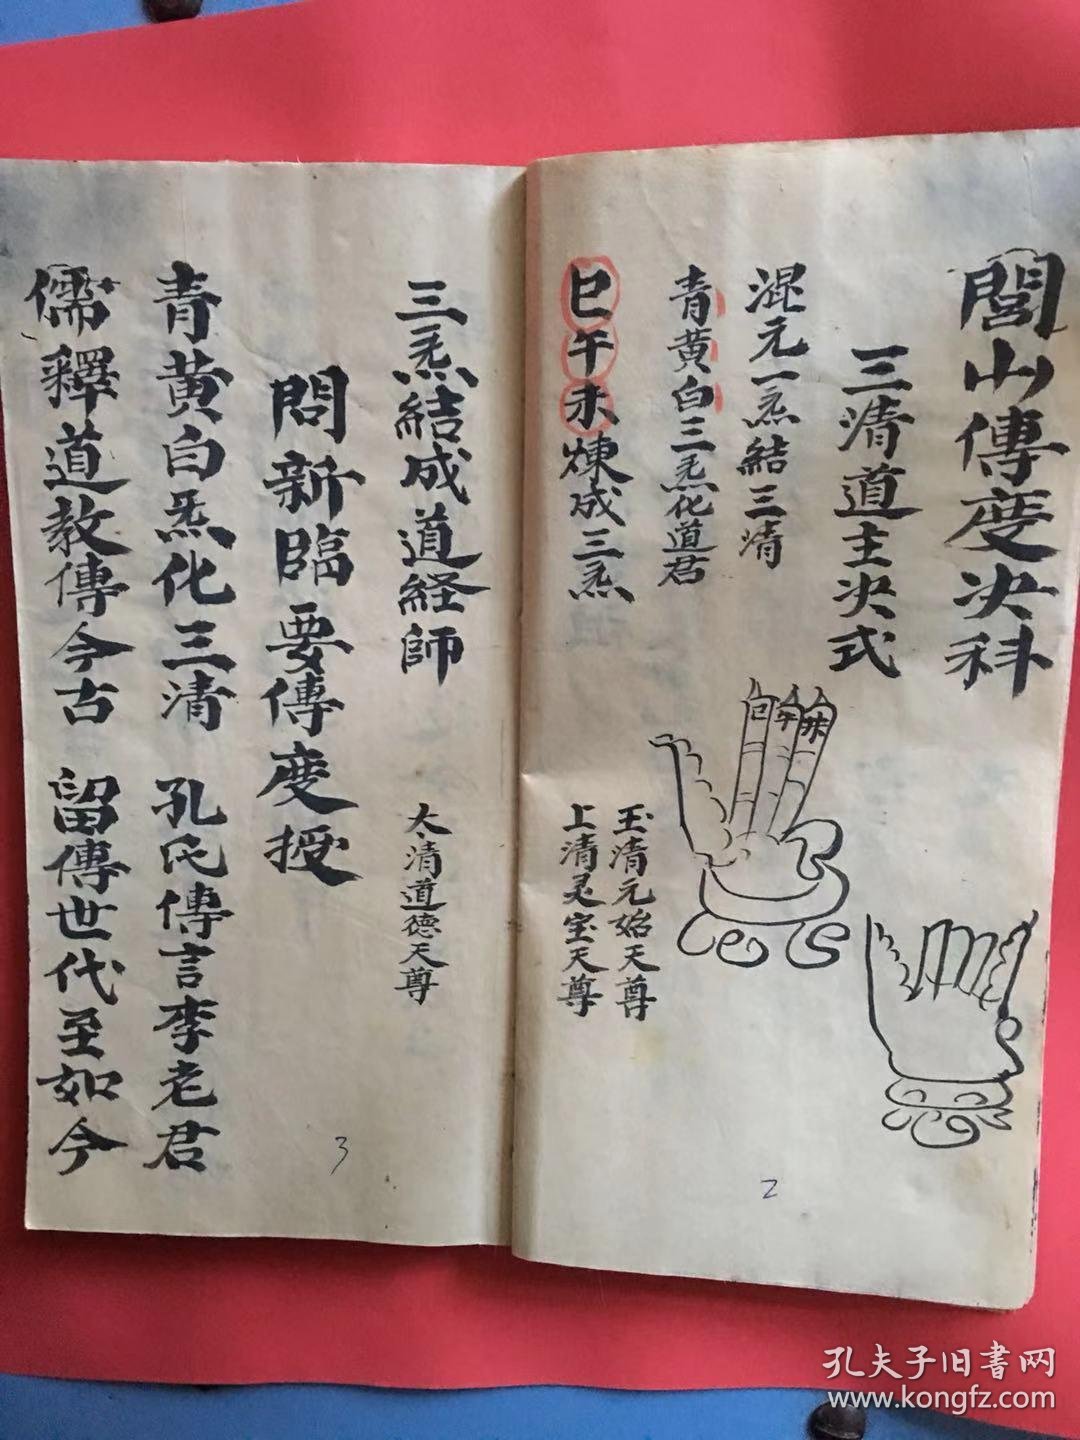 閭山傳度决科
三清道主决式
混元一炁結三清
青黄白三炁化道君
巳午未煉成三炁
巳午未
玉清元始天尊
上清灵宝天尊
2
三炁結成道経師
太清道德天尊
問新臨要傳度授
青黄白炁化三清 孔氏傳言李老君
儒釋道教傳今古 留傳世代至如今
3
孔夫子旧書网
www.kongfz.com